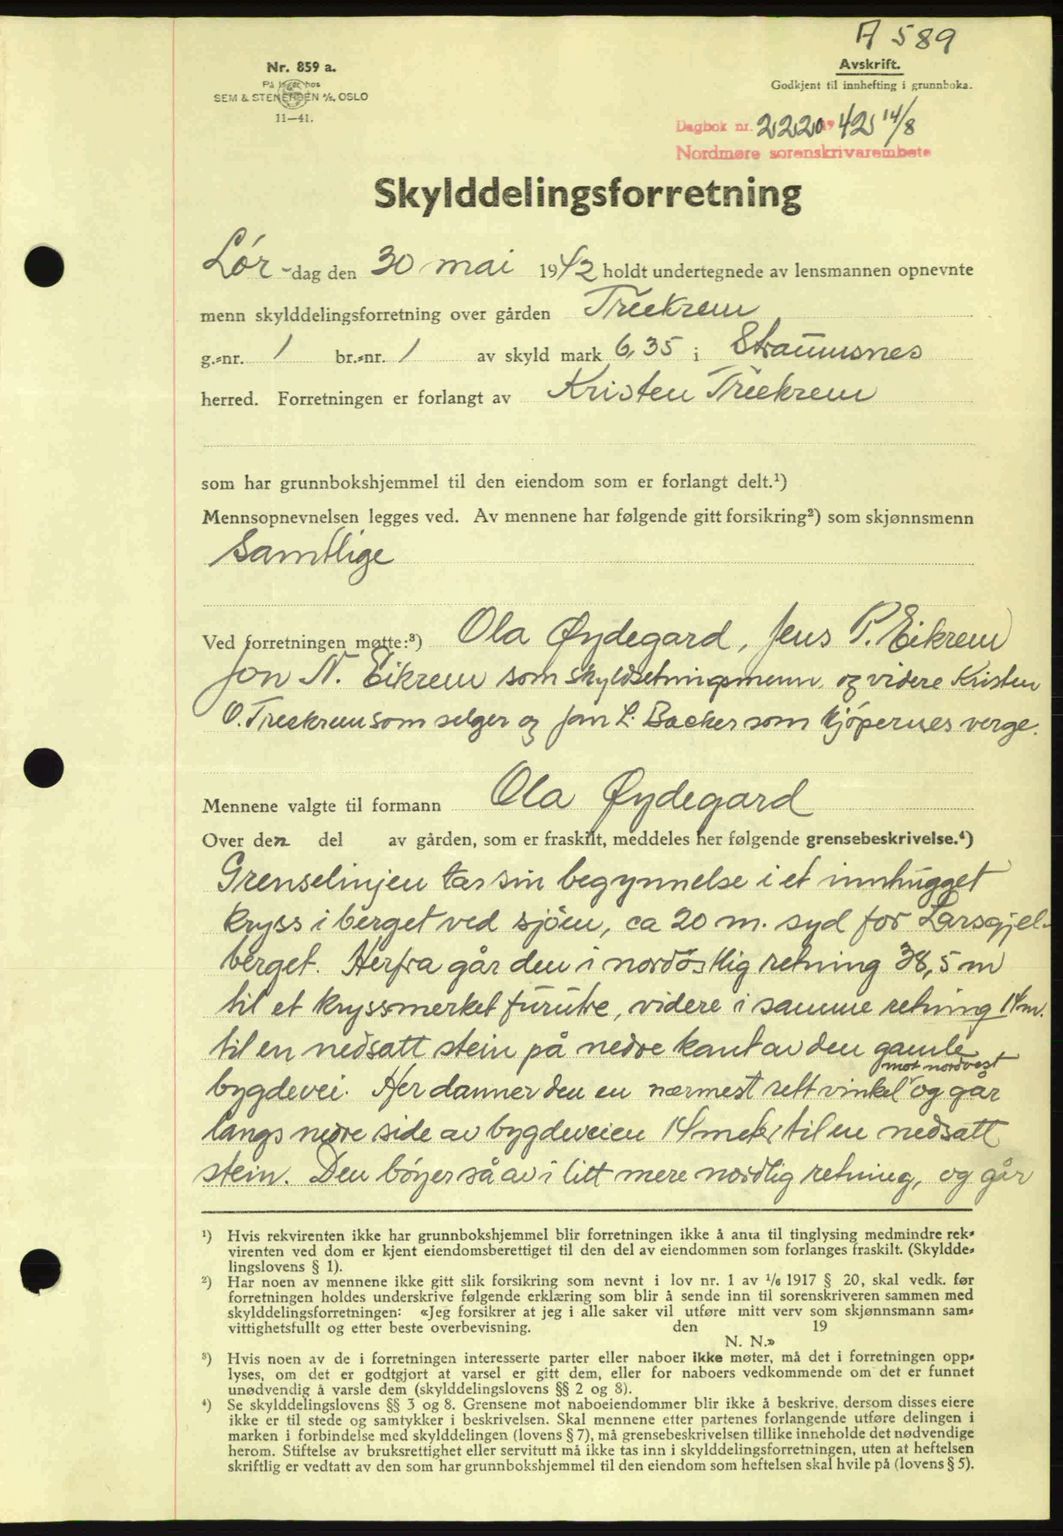 A 589
Nr. 859 a.
På lager hos
SEM & STENERSEN A/S, OSLO
11—41.
Avskrift.
Godkjent til innhefting i grunnboka.
Dagbok nr. 2220 1942 14/8
Nordmøre sorenskrivarembete
Skylddelingsforretning
Lør-dag den 30 mai 1942 holdt undertegnede av lensmannen opnevnte
menn skylddelingsforretning over gården Treekrem
g.-nr. 1 br.-nr. 1 av skyld mark 6,35 i Straumsnes
herred. Forretningen er forlangt av Kristen Treekrem
som har grunnbokshjemmel til den eiendom som er forlangt delt.¹)
Mennsopnevnelsen legges ved. Av mennene har følgende gitt forsikring²) som skjønnsmenn
Samtlige
Ved forretningen møtte:³) Ola Øydegard, Jens P. Eikrem
Jon N. Eikrem som skyldsetningsmenn, og videre Kristen
O. Treekrem som selger og Jon L. Backer som kjøpernes verge.
Mennene valgte til formann Ola Øydegard
Over den del av gården, som er fraskilt, meddeles her følgende grensebeskrivelse.⁴)
Grenselinjen tar sin begynnelse i et innhugget
kryss i berget ved sjøen, ca 20 m. syd for Larsgjel-
berget. Herfra går den i nordøstlig retning 38,5 m
til et kryssmerket furutre, videre i samme retning 14 m.
til en nedsatt stein på nedre kant av den gamle
bygdevei. Her danner den en nærmest rett vinkel mot nordvest og går
langs nedre side av bygdeveien 14 meter til en nedsatt
stein. Den bøyer så av i litt mere nordlig retning, og går
¹) Hvis rekvirenten ikke har grunnbokshjemmel blir forretningen ikke å anta til tinglysing medmindre rek-
virenten ved dom er kjent eiendomsberettiget til den del av eiendommen som forlanges fraskilt. (Skyldde-
lingslovens § 1).
²) Har noen av mennene ikke gitt slik forsikring som nevnt i lov nr. 1 av 1/6 1917 § 20, skal vedk. før
forretningen holdes underskrive følgende erklæring som blir å sende inn til sorenskriveren sammen med
skylddelingsforretningen: «Jeg forsikrer at jeg i alle saker vil utføre mitt verv som skjønnsmann sam-
vittighetsfullt og etter beste overbevisning. den 19
N. N.»
³) Hvis noen av de i forretningen interesserte parter eller naboer ikke møter, må det i forretningen opp-
lyses, om det er godtgjort at varsel er gitt dem, eller for naboers vedkommende om det er funnet
unødvendig å varsle dem (skylddelingslovens §§ 2 og 8).
⁴) Se skylddelingslovens §§ 3 og 8. Grensene mot naboeiendommer blir ikke å beskrive, dersom disses eiere
ikke er til stede og samtykker i beskrivelsen. Skal mennene etter partenes forlangende utføre delingen i
marken i forbindelse med skylddelingen (lovens § 7), må grensebeskrivelsen tillike inneholde det nødvendige
herom. Stiftelse av bruksrettighet eller servitutt må ikke tas inn i skylddelingsforretningen, uten at heftelsen
skriftlig er vedtatt av den som har grunnbokshjemmel til den eiendom som heftelsen skal hvile på (lovens § 5).